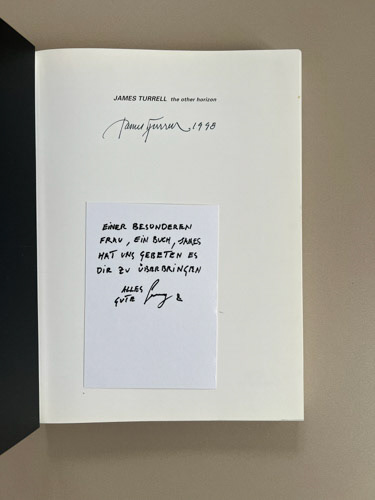 JAMES TURRELL the other horizon
James Turrell, 1998
EINER BESONDEREN
FRAU, EIN BUCH, JAMES
HAT UNS GEBETEN ES
DIR ZU ÜBERBRINGEN
ALLES
GUTE &